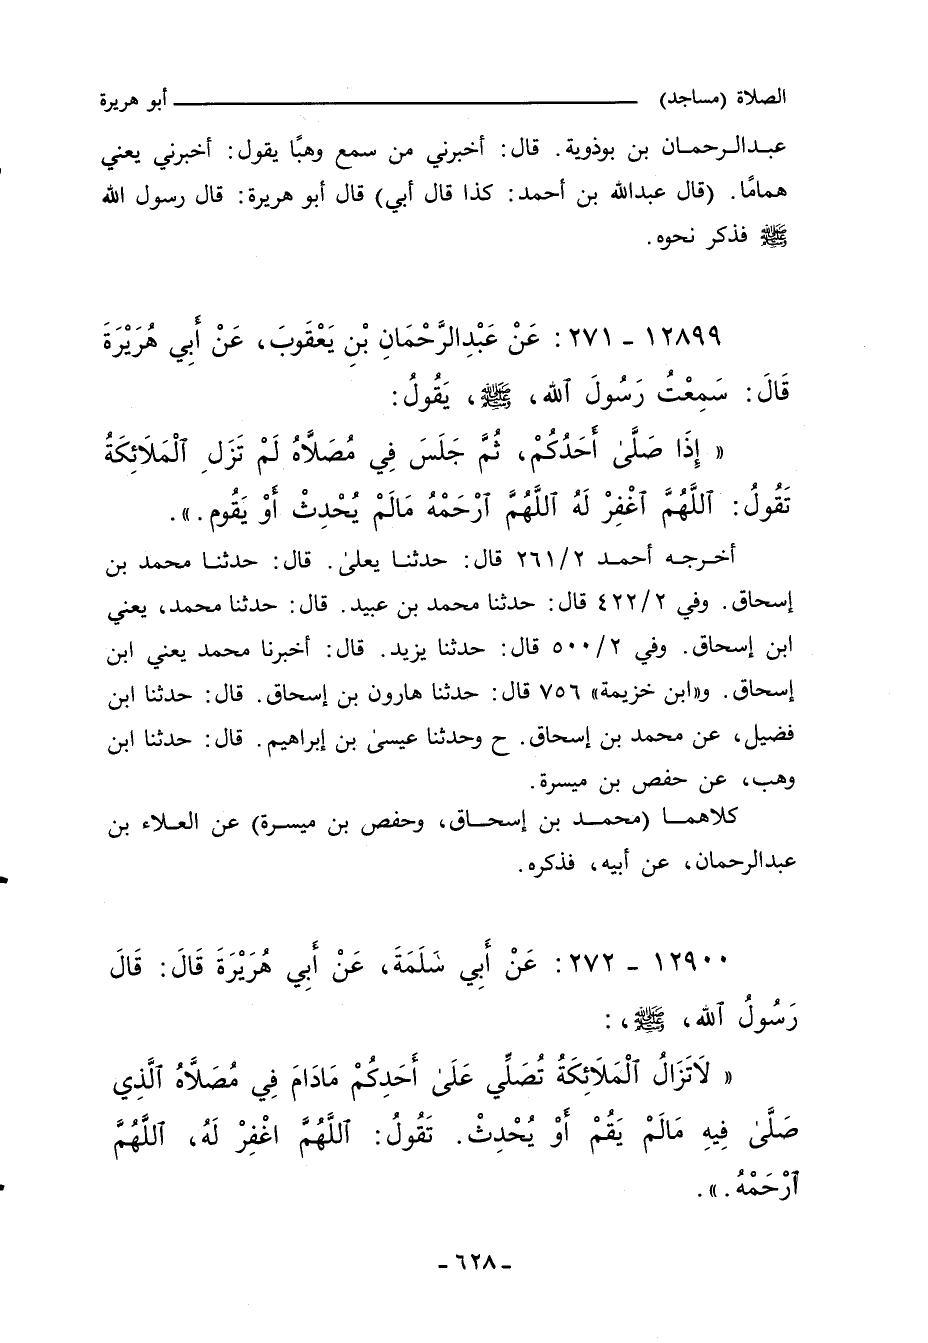 الصلاة (مساجد) ـــــــــــــــــ أبو هريرة
عبـدالـرحمـان بن بوذوية. قال: أخبرني من سمع وهبًا يقول: أخبرني يعني
همامًا. (قال عبدالله بن أحمد: كذا قال أبي) قال أبو هريرة: قال رسول الله
ﷺ فذكر نحوه.
١٢٨٩٩ - ٢٧١: عَنْ عَبْدِالرَّحْمَانِ بْنِ يَعْقُوبَ، عَنْ أَبِي هُرَيْرَةَ
قَالَ: سَمِعْتُ رَسُولَ ٱلله، ﷺ، يَقُولُ:
« إِذَا صَلَّىٰ أَحَدُكُمْ، ثُمَّ جَلَسَ فِي مُصَلَّاهُ لَمْ تَزَلِ ٱلْمَلَائِكَةُ
تَقُولُ: اَللَّهُمَّ ٱغْفِرْ لَهُ اَللَّهُمَّ ٱرْحَمْهُ مَالَمْ يُحْدِثْ أَوْ يَقُوم.».
أخـرجـه أحمـد ٢٦١/٢ قال: حدثنـا يعلىٰ. قال: حدثنـا محمد بن
إسحاق. وفي ٤٢٢/٢ قال: حدثنا محمد بن عبيد. قال: حدثنا محمد، يعني
ابن إسحاق. وفي ٥٠٠/٢ قال: حدثنا يزيد. قال: أخبرنا محمد يعني ابن
إسحاق. و«ابن خزيمة» ٧٥٦ قال: حدثنا هارون بن إسحاق. قال: حدثنا ابن
فضيل، عن محمد بن إسحاق. ح وحدثنا عيسىٰ بن إبراهيم. قال: حدثنا ابن
وهب، عن حفص بن ميسرة.
كلاهمـا (محمـد بن إسحـاق، وحفص بن ميسـرة) عن العـلاء بن
عبدالرحمان، عن أبيه، فذكره.
١٢٩٠٠ - ٢٧٢: عَنْ أَبِي سَلَمَةَ، عَنْ أَبِي هُرَيْرَةَ قَالَ: قَالَ
رَسُولُ ٱلله، ﷺ،:
« لَاتَزَالُ ٱلْمَلَائِكَةُ تُصَلِّي عَلَىٰ أَحَدِكُمْ مَادَامَ فِي مُصَلَّاهُ ٱلَّذِي
صَلَّىٰ فِيهِ مَالَمْ يَقُمْ أَوْ يُحْدِثْ. تَقُولُ: اَللَّهُمَّ اغْفِرْ لَهُ، اَللَّهُمَّ
ٱرْحَمْهُ.».
- ٦٢٨ -